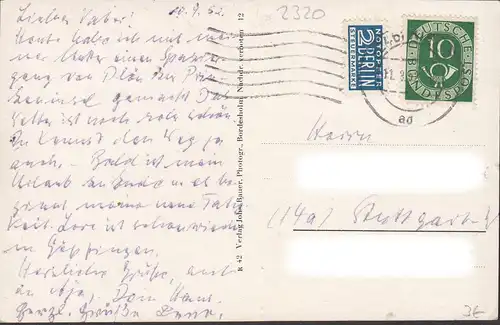 Lieber Vater! 10. 9. 52.
Heute habe ich mit meiner
Mutter einen Spazier-
gang von Plön der Prin
zeninsel gemacht Das
Wetter ist noch sehr schön.
Du kennst den Weg ja
auch. – Bald ist mein
Urlaub zu Ende u. es be
ginnt meine neue Tätig
keit. Lore ist schon wieder
in Göppingen.
Herzliche Grüße, auch
an Dein Hans.
Herzl. Grüße Lore.
K 42 Verlag Johs. Bauer, Photogr., Bordesholm, Nachdr. verboten 12
2320
NOTOPFER
2 BERLIN
STEUERMARKE
DEUTSCHE POST
10
BUNDESPOST
ad
Herrn
(14a) Stuttgart
3E